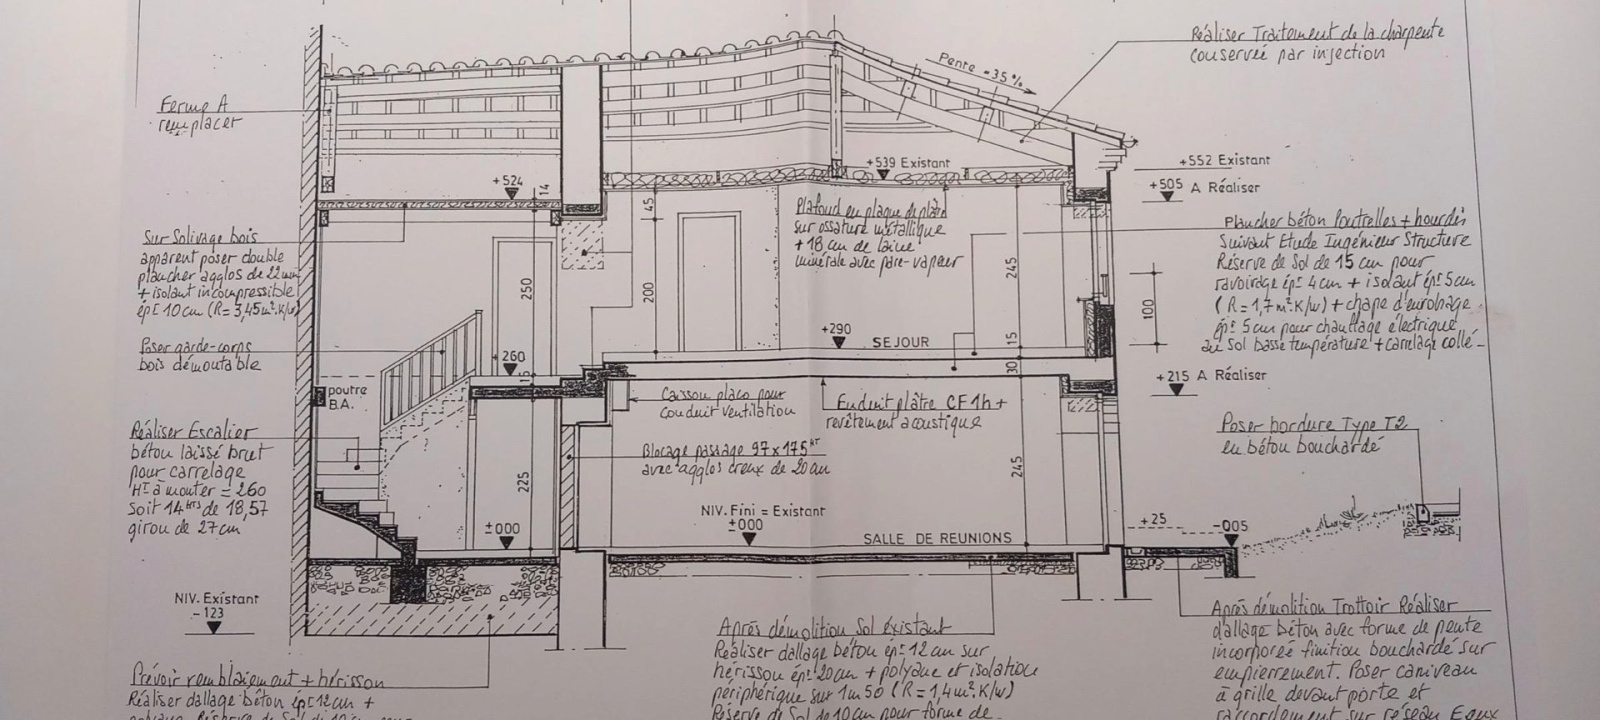 Réaliser Traitement de la charpente
conservée par injection
Pente = 35%
Ferme A
remplacer
+539 Existant
+552 Existant
+505 A Réaliser
+524
14
45
Plafond en plaque de plâtre
sur ossature métallique
+ 18 cm de laine
minérale avec pare-vapeur
Plancher béton Poutrelles + hourdis
Suivant Etude Ingénieur Structure
Réserve de Sol de 15 cm pour
ravoirage épr 4cm + isolant épr 5cm
(R = 1,7 m².K/w) + chape d'enrobage
épr 5cm pour chauffage électrique
au Sol basse température + carrelage collé-
Sur Solivage bois
apparent poser double
plancher agglos de 22mm
+ isolant incompressible
épr 10cm (R= 3,45m².K/w)
250
200
245
100
Poser garde-corps
bois démontable
+290
SEJOUR
15
+260
15
30
poutre
B.A.
+215 A Réaliser
Caisson placo pour
conduit ventilation
Enduit plâtre CF 1h +
revêtement acoustique
Poser bordure Type T2
en béton bouchardé
Réaliser Escalier
béton laissé brut
pour carrelage
HT à monter = 260
soit 14 HTS de 18,57
giron de 27cm
Blocage passage 97x175 HT
avec agglos creux de 20cm
225
245
NIV. Fini = Existant
±000
±000
SALLE DE REUNIONS
+25
-005
NIV. Existant
-123
Après démolition Sol existant
Réaliser dallage béton épr 12cm sur
hérisson épr 20cm + polyane et isolation
périphérique sur 1m50 (R = 1,4m².K/w)
Réserve de Sol de 10cm pour forme de-
Après démolition Trottoir Réaliser
dallage béton avec forme de pente
incorporée finition bouchardée sur
empierrement. Poser caniveau
à grille devant porte et
raccordement sur réseau Eaux
Prévoir remblaiement + hérisson
Réaliser dallage béton épr 12cm +